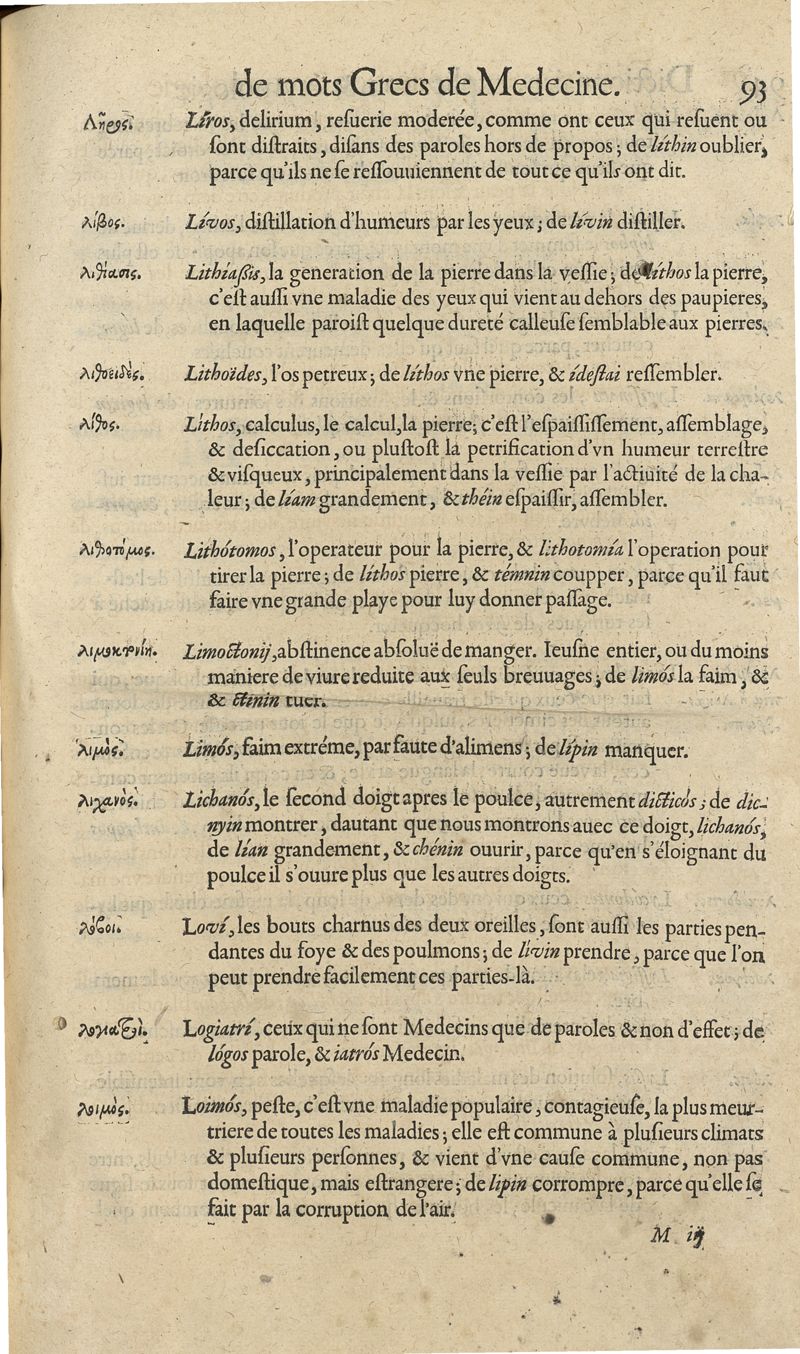 de mots Grecs de Medecine. 93
Λῆρος. Líros, delirium, reſuerie moderée, comme ont ceux qui reſuent ou
ſont diſtraits, diſans des paroles hors de propos; de líthin oublier,
parce qu'ils ne ſe reſſouuiennent de tout ce qu'ils ont dit.
λίβος. Lívos, diſtillation d'humeurs par les yeux; de lívin diſtiller.
λιθίασις. Lithíaſis, la generation de la pierre dans la veſſie; de líthos la pierre,
c'eſt auſſi vne maladie des yeux qui vient au dehors des paupieres,
en laquelle paroiſt quelque dureté calleuſe ſemblable aux pierres.
λιθοειδὲς. Lithoïdes, l'os petreux; de líthos vne pierre, & ídeſtai reſſembler.
λίθος. Líthos, calculus, le calcul, la pierre; c'eſt l'eſpaiſſiſſement, aſſemblage,
& deſiccation, ou pluſtoſt la petrification d'vn humeur terreſtre
& viſqueux, principalement dans la veſſie par l'actiuité de la cha-
leur; de líam grandement, & théin eſpaiſſir, aſſembler.
λιθοτόμος. Lithótomos, l'operateur pour la pierre, & lithotomía l'operation pour
tirer la pierre; de líthos pierre, & témnin coupper, parce qu'il faut
faire vne grande playe pour luy donner paſſage.
λιμοκτονίη. Limoctonij, abſtinence abſoluë de manger. Ieuſne entier, ou du moins
maniere de viure reduite aux ſeuls breuuages; de limós la faim, &
& ctinin tuer.
λιμὸς. Limós, faim extréme, par faute d'alimens; de lípin manquer.
λιχανὸς. Lichanós, le ſecond doigt apres le poulce, autrement dicticòs; de dic-
nyin montrer, dautant que nous montrons auec ce doigt, lichanós,
de lían grandement, & chénin ouurir, parce qu'en s'éloignant du
poulce il s'ouure plus que les autres doigts.
λόβοι. Loví, les bouts charnus des deux oreilles, ſont auſſi les parties pen-
dantes du foye & des poulmons; de livin prendre, parce que l'on
peut prendre facilement ces parties-là.
λογιατροὶ. Logiatrí, ceux qui ne ſont Medecins que de paroles & non d'effet; de
lógos parole, & iatrós Medecin.
λοιμὸς. Loimós, peſte, c'eſt vne maladie populaire, contagieuſe, la plus meur-
triere de toutes les maladies; elle eſt commune à pluſieurs climats
& pluſieurs perſonnes, & vient d'vne cauſe commune, non pas
domeſtique, mais eſtrangere; de lipin corrompre, parce qu'elle ſe
fait par la corruption de l'air.
M iij